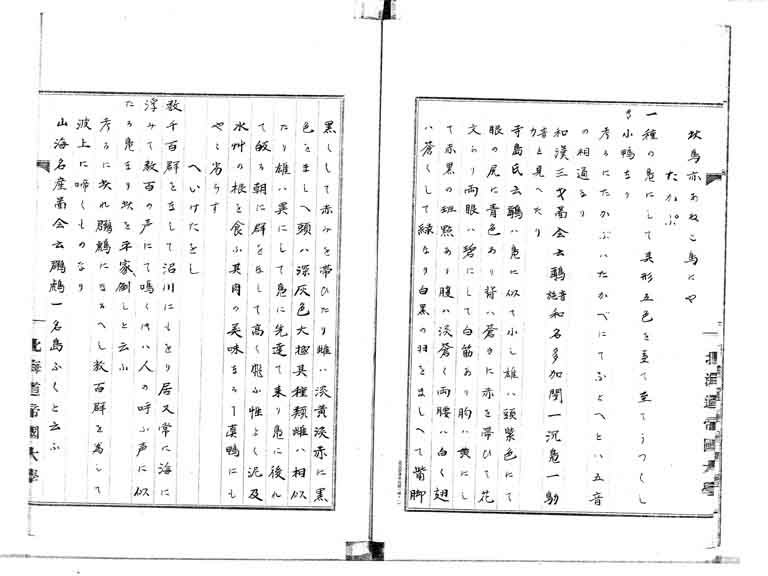 此鳥亦あねこ鳥にや
たかぶ
一種の鳧にして其形五色を重て至てうつくし
き小鴨なり
考るにたかぶハたかべにてぶとへとハ五音
の相通なり
和漢三才啚会云鸍音施和名多加閇一沉鳧一
音と見へたり
寺島氏云鸍ハ鳧に似て小し雄ハ頭紫色にて
眼の尻に青色あり背ハ蒼きに赤を帯ひて花
文あり両眼ハ碧にして白筋あり胸ハ黄にし
て赤黒の斑點あり腹ハ淡蒼く両腰ハ白く翅
ハ蒼くして緑なり白黒の羽をましへて觜脚
黒くして赤みを帯ひたり雌ハ淡黄淡赤に黒
色をましへ頭ハ深灰色大概其種類雌ハ相似
たり雄ハ異にして鳧に先達て来り鳧に後れ
て皈る朝に群をなして高く飛ふ性よく泥及
水艸の根を食ふ其肉の美味なる真鴨にも
やゝ劣らす
へいけたをし
数千百群をなして沼川にもをり居又常に海に
浮みて数百の声にて鳴くハ人の呼ふ声に似
たる鳧なり此を平家倒しと云ふ
考るに此れ鸊鷉になるへし数百群を為して
波上に啼くものなり
山海名産啚会云鸊鷉一名鳰ふくと云ふ
北海道帝國大學
北海道帝國大學